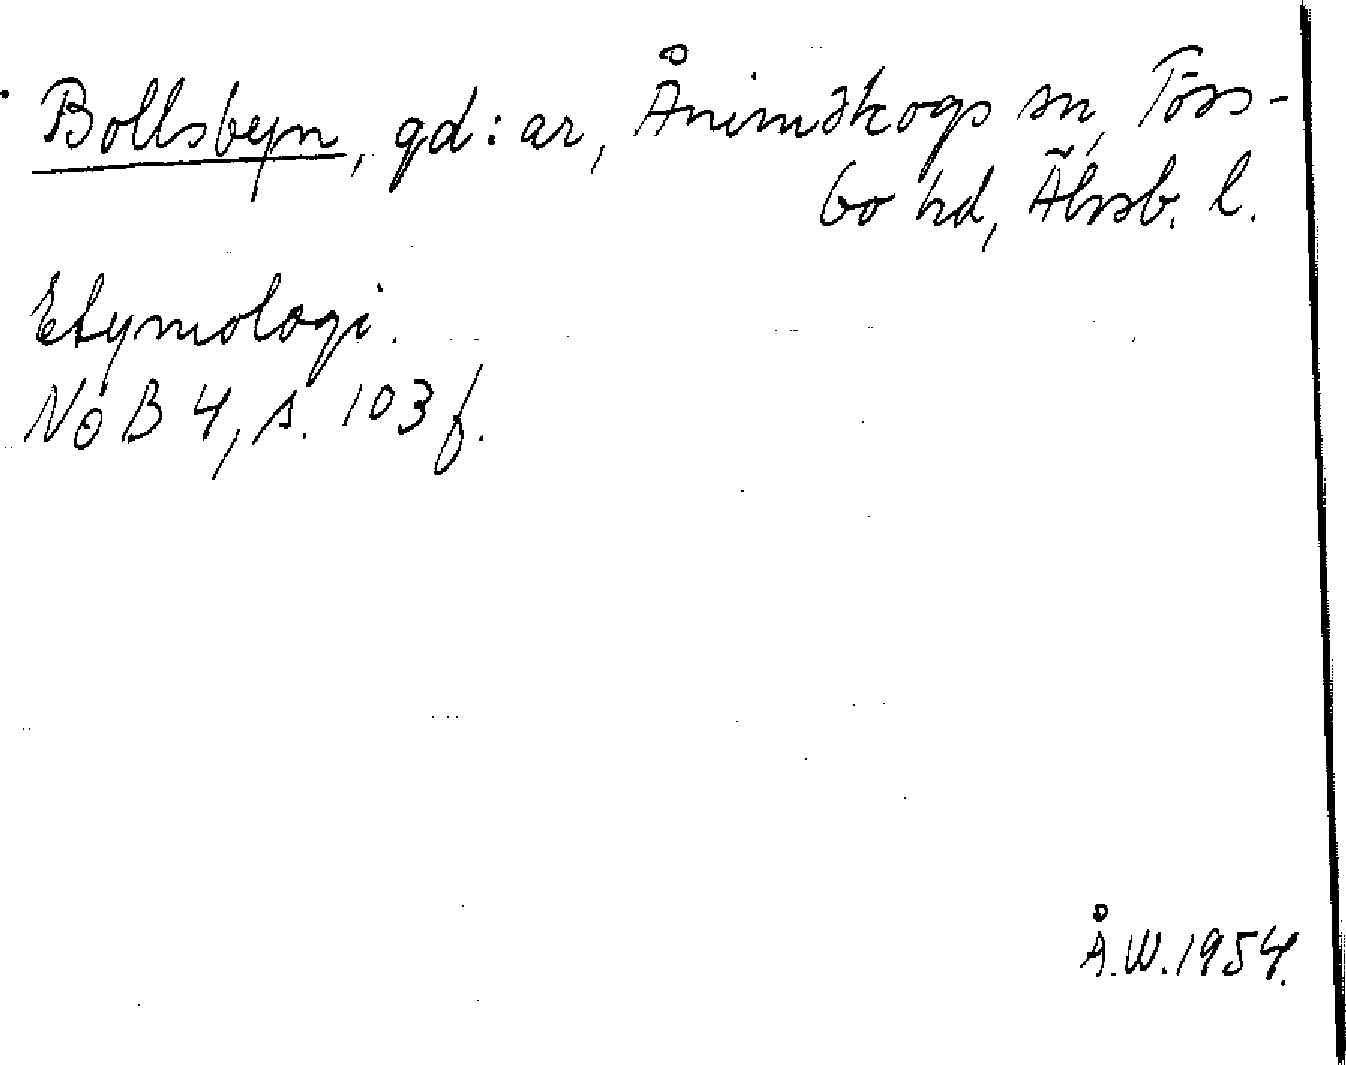 Bollsbyn, gd:ar, Ånimskogs sn, Töss-
bo hd, Älvsb. l.
Etymologi.
NoB 4, s. 103 f.
Å.W. 1954.